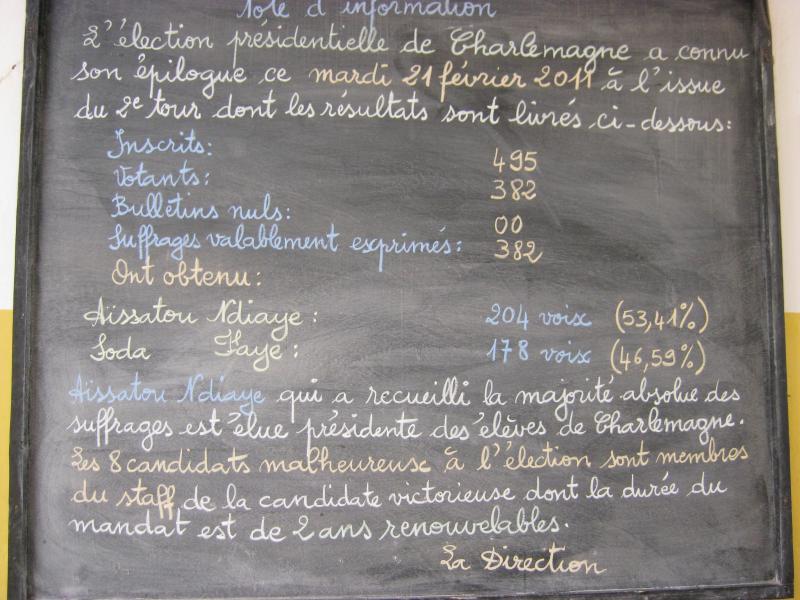 Note d'information
L'élection présidentielle de Charlemagne a connu
son épilogue ce mardi 21 février 2011 à l'issue
du 2e tour dont les résultats sont livrés ci-dessous:
Inscrits: 495
Votants: 382
Bulletins nuls: 00
Suffrages valablement exprimés: 382
Ont obtenu:
Aissatou Ndiaye: 204 voix (53,41%)
Soda Faye: 178 voix (46,59%)
Aissatou Ndiaye qui a recueilli la majorité absolue des
suffrages est élue présidente des élèves de Charlemagne.
Les 8 candidats malheureuse à l'élection sont membres
du staff de la candidate victorieuse dont la durée du
mandat est de 2 ans renouvelables.
La Direction